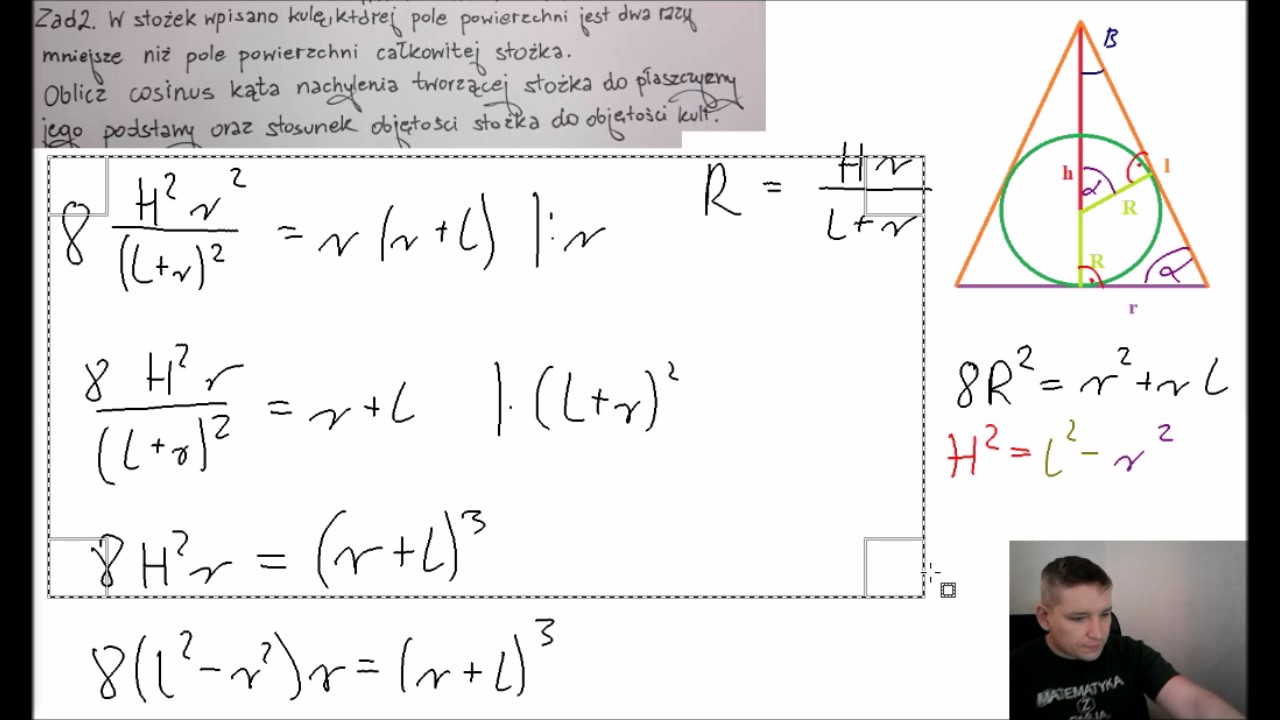 Zad2. W stożek wpisano kulę, której pole powierzchni jest dwa razy
mniejsze niż pole powierzchni całkowitej stożka.
Oblicz cosinus kąta nachylenia tworzącej stożka do płaszczyzny
jego podstawy oraz stosunek objętości stożka do objętości kuli.
8 H² r² / (L+r)² = r (r+L) |: r
R = Hr / L+r
8 H² r / (L+r)² = r+L |· (L+r)²
8 H² r = (r+L)³
8 (L² - r²) r = (r+L)³
B
h
α
l
R
R
α
r
8R² = r² + r L
H² = L² - r²
MATEMATYKA
Z